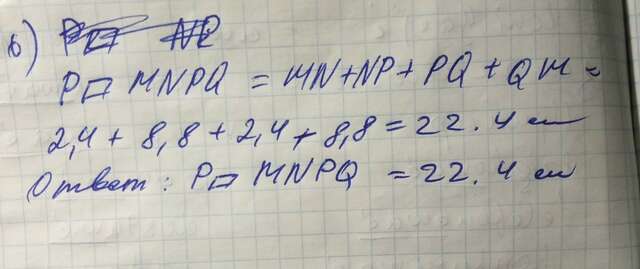 б) P▱ NP
P▱ MNPQ = MN+NP+PQ+QM=
2,4+8,8+2,4+8,8=22.4 см
Ответ: P▱ MNPQ = 22.4 см